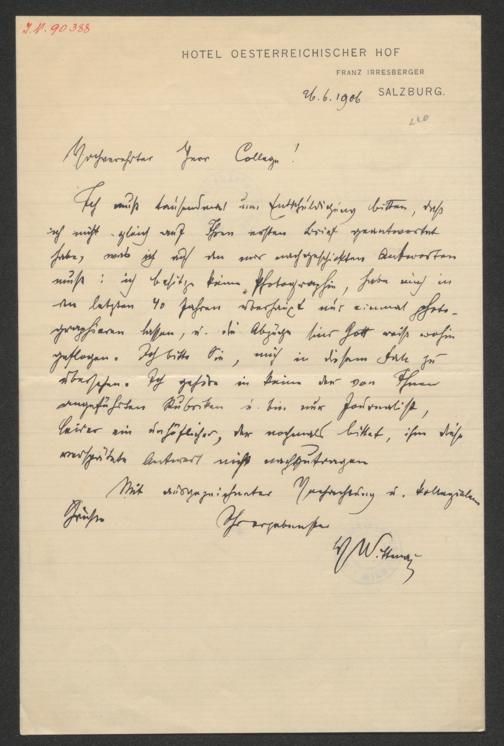 I.N. 90388
HOTEL OESTERREICHISCHER HOF
FRANZ IRRESBERGER
26.6.1906 SALZBURG.
Hochverehrter Herr College!
Ich muß tausendmal um Entschuldigung bitten, daß
ich nicht gleich auf Ihren ersten Brief geantwortet
habe, was ich auf den mir nachgeschickten antworten
muß: ich besitze keine Photographie, habe mich in
den letzten 40 Jahren überhaupt nur einmal photo-
graphieren lassen, u. die Abzüge sind Gott weiß wohin
geflogen. Ich bitte Sie, mich in diesem Falle zu
übersehen. Ich gehöre in keine der von Ihnen
angeführten Rubriken u. bin nur Journalist,
leider ein unhöflicher, der nochmals bittet, ihm diese
verspätete Antwort nicht nachzutragen
Mit ausgezeichneter Hochachtung u. kollegialen
Grüßen Ihr ergebenster
Wittmann